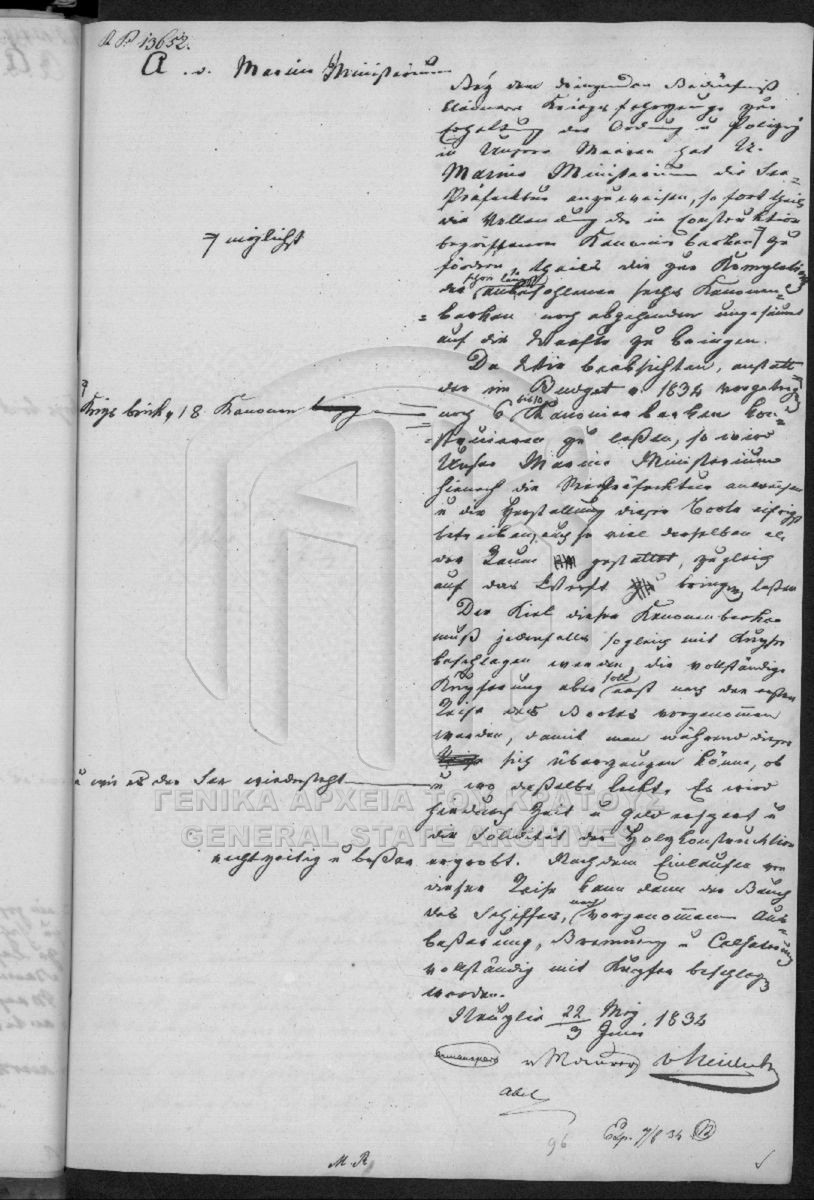 R. P. 13652.
A. d. Marine Ministerium
Bey dem dringenden Bedürfniß
kleinerer Kriegsfahrzeuge zur
Erhaltung der Ordnung u Polizey
in Unseren Meeren hat U.
Marine Ministerium die See-
Präfektur anzuweisen, so fort theils
die Vollendung der in Construktion
begriffenen Kanonierbarken zu
⁊ möglichst
fördern, theils die zur Completirung
der schon längst anbefohlenen sechs Kanonier-
barken noch abgehenden ungesäumt
auf die Werfte zu bringen.
Da Wir beabsichten, anstatt
der im Budget v. 1834 vorgetragenen
Krigs brick v 18 Kanonen
noch 6 bis 10 Kanonierbarken con-
struieren zu laßen, so wird
Unser Marine Ministerium
hienach die Seepräfektur anweisen
u die Herstellung dieser Boote eifrigst
betreiben, auch so viel derselben als
der Raum gestattet, zugleich
auf das Werft bringen laßen
Der Kiel dieser Kanonierbarken
muß jedenfalls sogleich mit Kupfer
beschlagen werden, die vollständige
Kupferung aber soll erst nach der ersten
Reise des Bootes vorgenommen
werden, damit man während dieser
sich überzeugen könne, ob
u wie es der See wiedersteht
u wo daßelbe leckt. Es wird
hiedurch Zeit u Geld erspart u
die Solidität der Holzconstruktion
rechtzeitig u beßer
erprobt. Nach dem Einlaufen von
dieser Reise kann dann der Bauch
des Schiffes, nach vorgenommener Aus-
beßerung, Brennung u Calfaterung
vollständig mit Kupfer beschlagen
werden.
Nauplia 22 May / 3 Juni 1834
Armansperg v Maurer v Heideck
Abel
96 Exp. 7/8 34 12
M. R.
ΓΕΝΙΚΑ ΑΡΧΕΙΑ ΤΟΥ ΚΡΑΤΟΥΣ
GENERAL STATE ARCHIVES